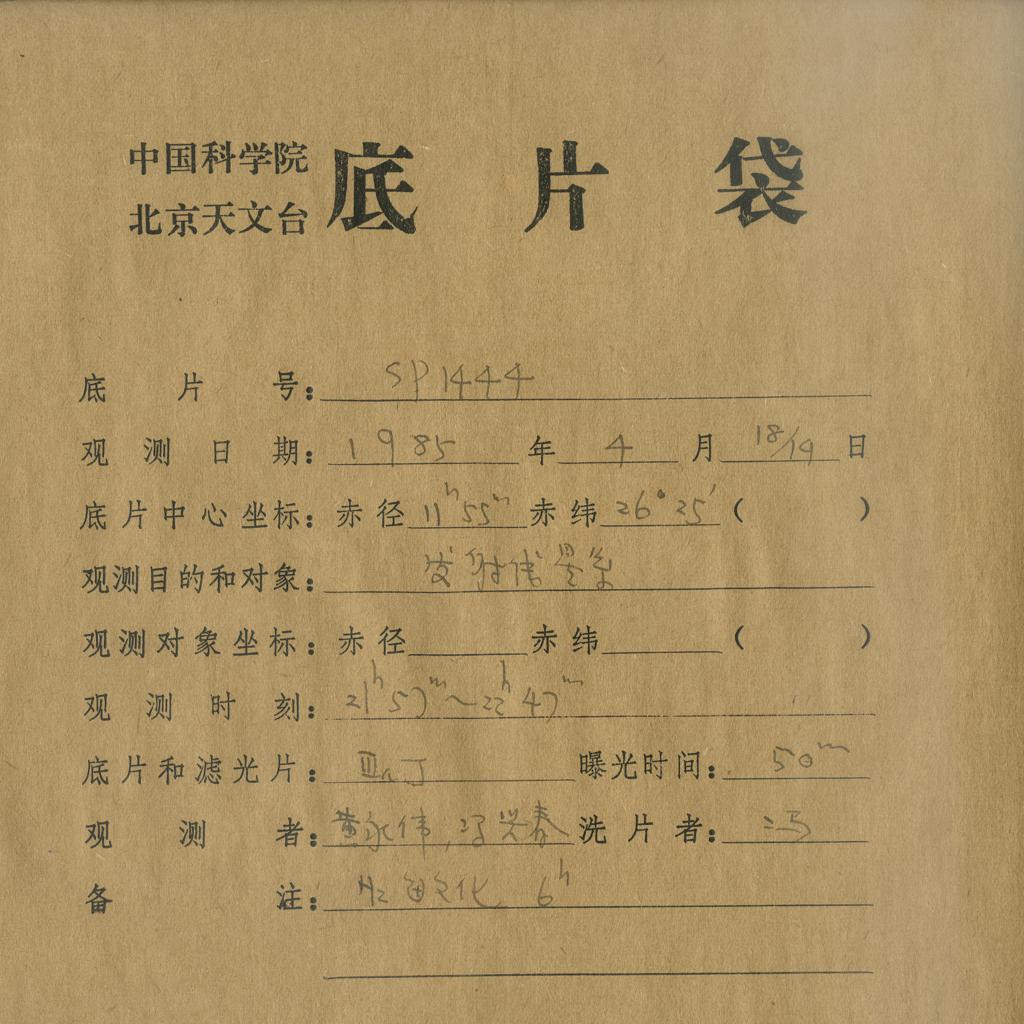 中国科学院
北京天文台
底片袋
底片号：SP1444
观测日期：1985年4月18/19日
底片中心坐标：赤径11ʰ55ᵐ赤纬26°25′（ ）
观测目的和对象：发射线星系
观测对象坐标：赤径 赤纬 （ ）
观测时刻：21ʰ57ᵐ～22ʰ47ᵐ
底片和滤光片：Ⅲa J 曝光时间：50ᵐ
观测者：黄永伟，冯兴春 洗片者：冯
备注：H₂ 敏化 6ʰ